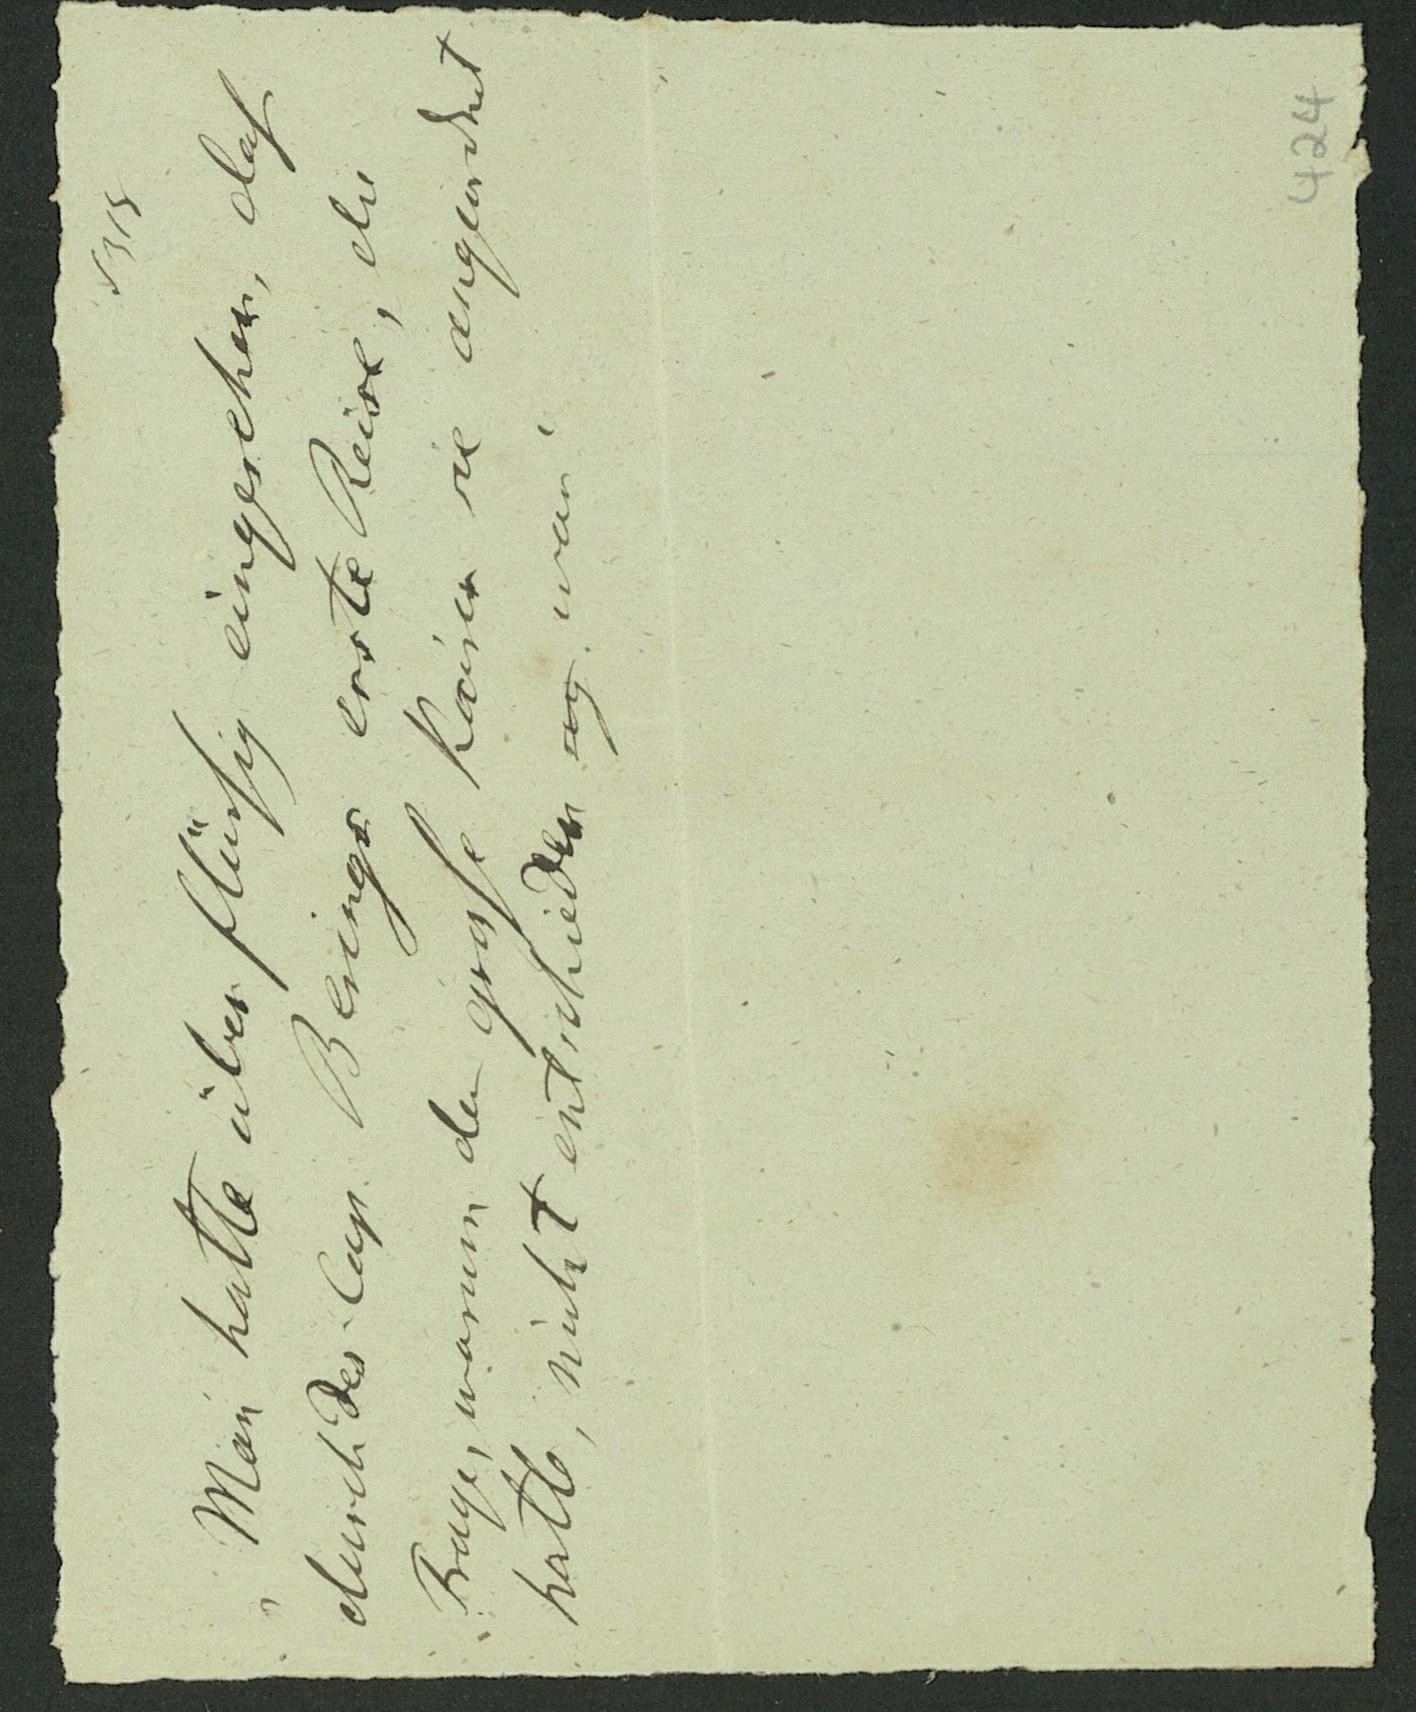 „Man hatte überflüssig eingesehen, daß
durch des Cap. Berings erste Reise, die
Frage, warum der grosse Kaiser sie angeordnet
hatte, nicht entschieden war“
424